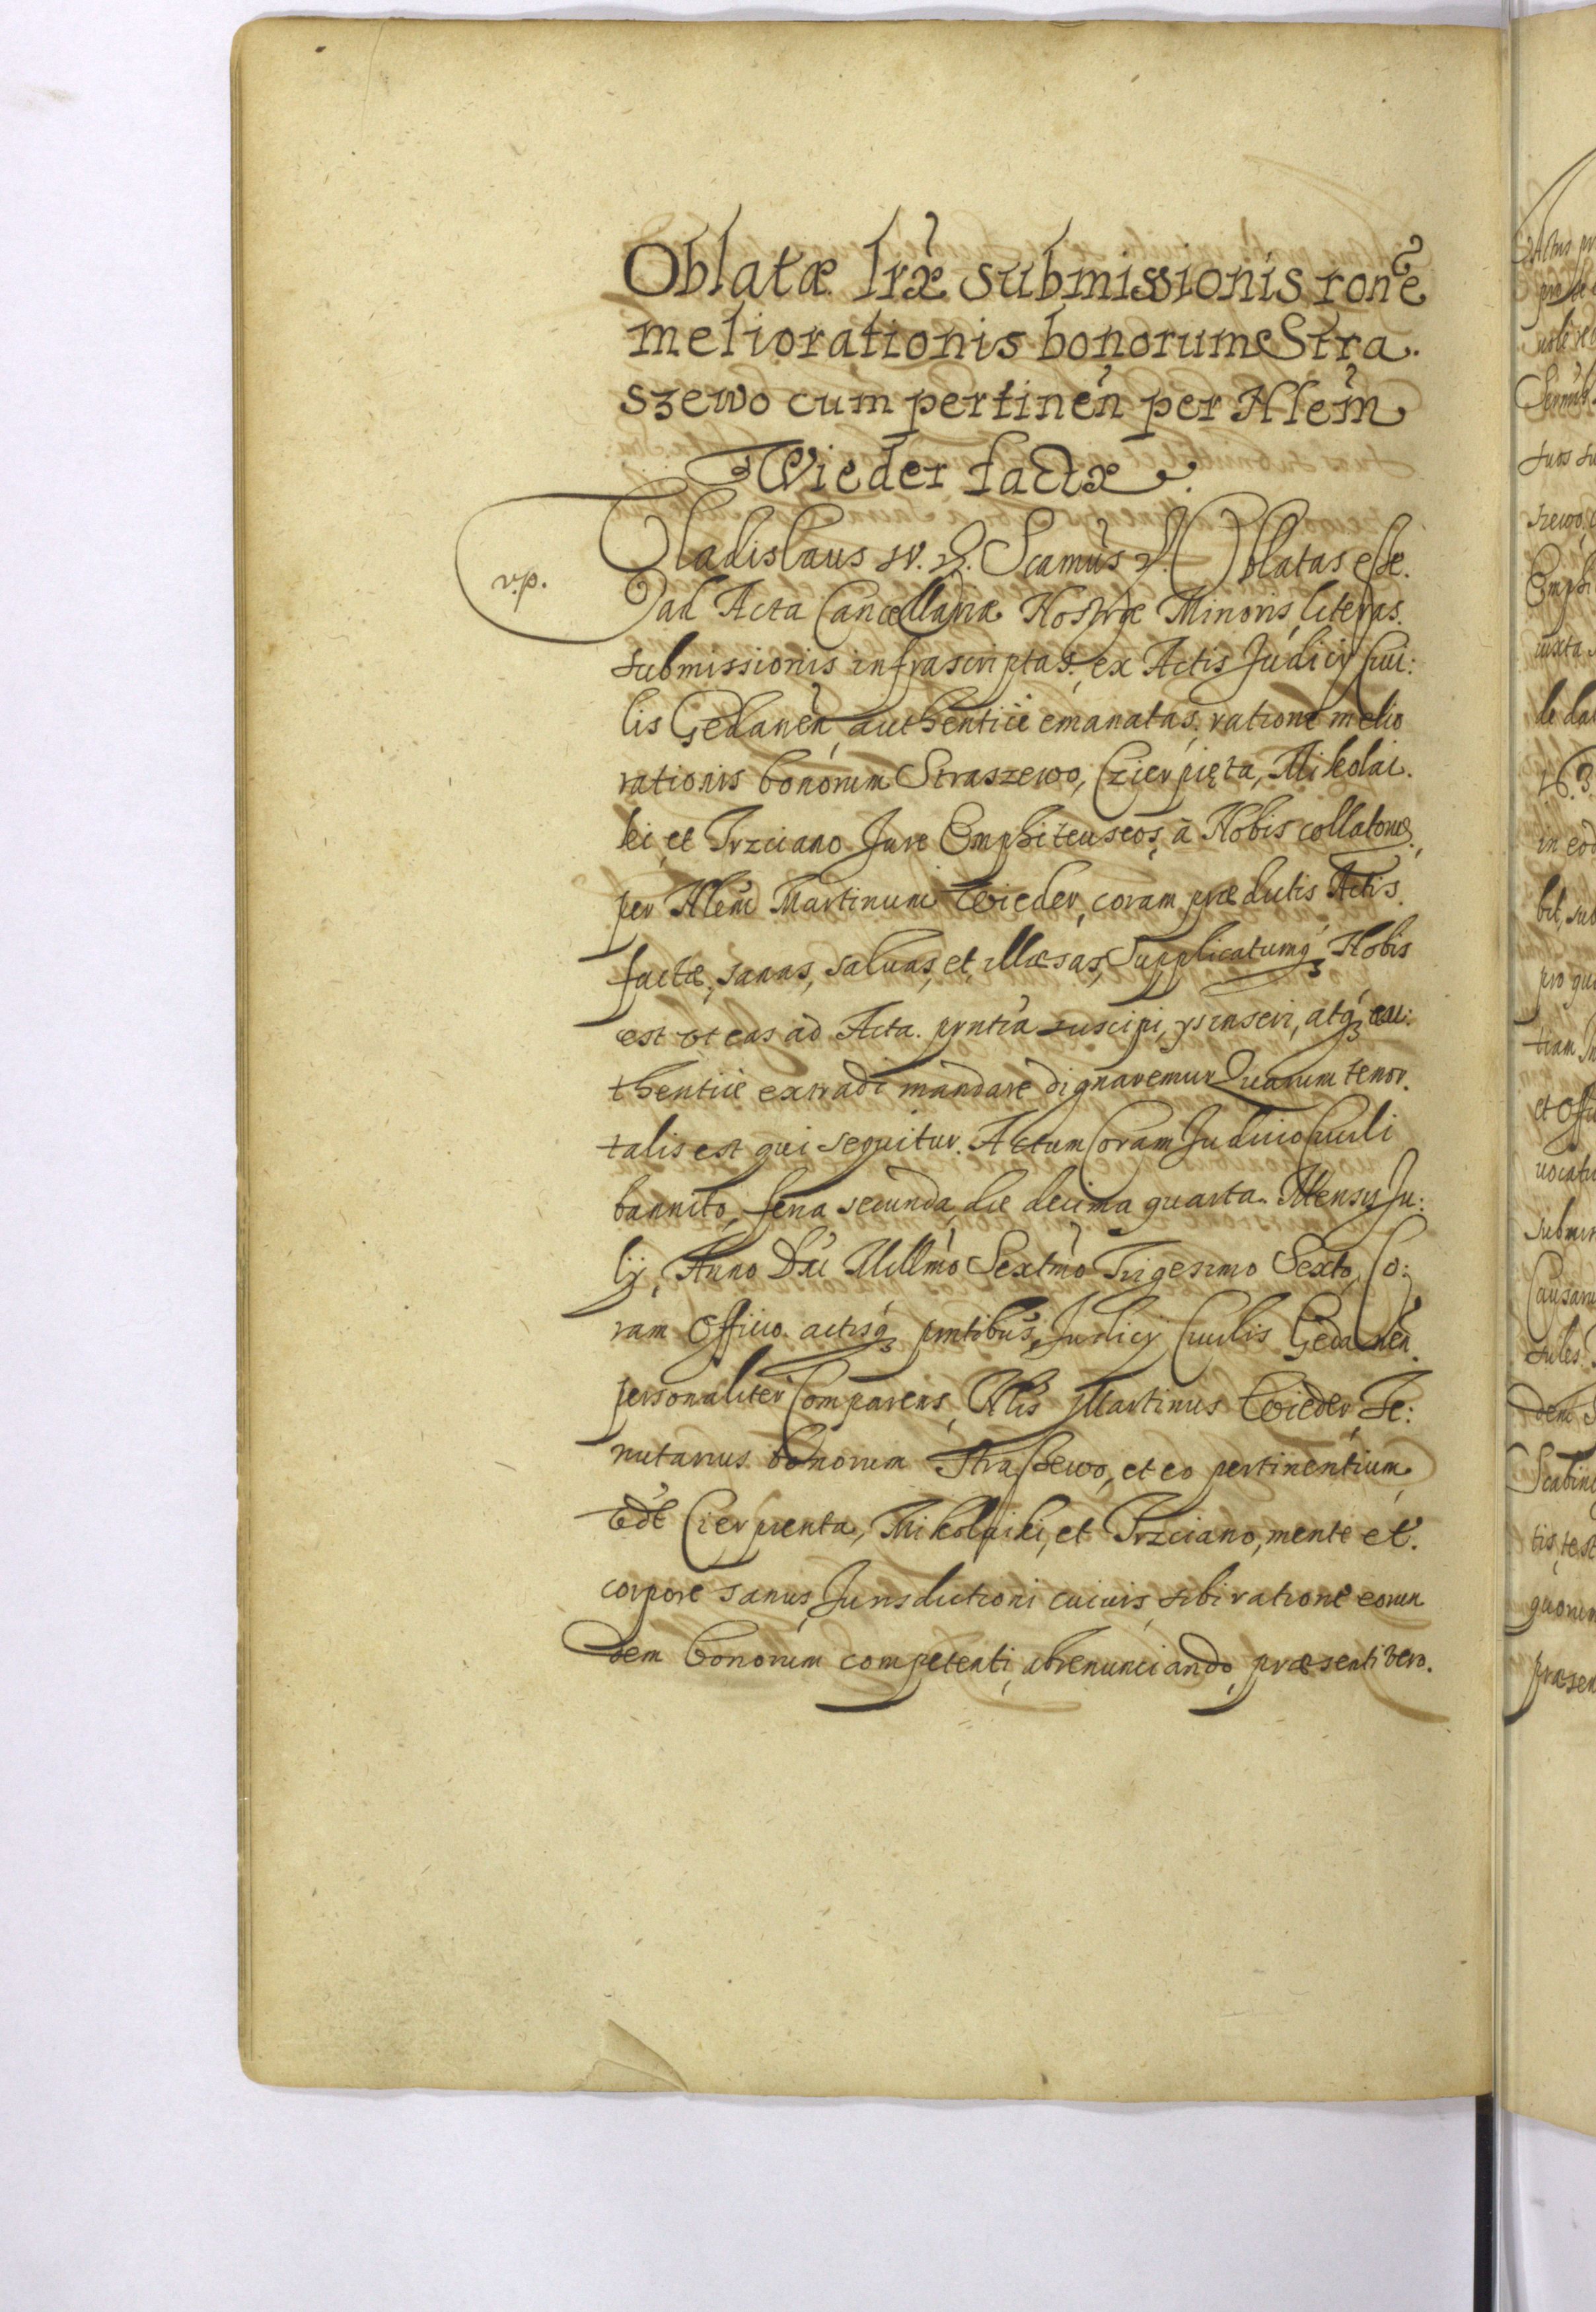 Oblatæ lr̃æ submissionis rone͂
meliorationis bonorum Stra.
szewo cum pertinen̉ per Nlem̃
Wieder factæ.
v.p.
Vladislaus IV. Scamus Oblatas esse.
ad Acta Cancellariæ Nostræ Minoris, literas.
submissionis infrascriptas, ex Actis Judicij Civi:
lis Gedanen̉ authentice emanatas, ratione melio
rationis bonorum Straszewo, Czierpięta, Mikolai.
ki, et Trzciano Jure Emphiteuseos, à Nobis collatorũ,
per Nlem̃ Martinum Wieder, coram prædictis Actis.
factæ, sanas, saluas, et illæsas, Supplicatumq; Nobis
est ut eas ad Acta. prntia suscipi, ijs inseri, atq; au:
thentice extradi mandare dignaremur Quarum tenor.
talis est qui sequitur. Actum Coram Judicio Ciuili
bannito, feria secunda, die decima quarta. Mensis Ju:
lij, Anno Dni Millmo Sextmo Trigesimo Sexto, Co:
ram Officio. actisq; prntibus, Judicij Ciuilis Gedanen̉.
personaliter Comparens, Nlis Martinus Wieder, Te:
nutarius bonorum Strassewo, et eo pertinentium,
Vdt Cierpienta, Mikolaiki, et Trzciano, mente et.
corpore sanus, Jurisdictioni cuiuis, sibi ratione eorun
dem bonorum competenti, abrenunciando, præsenti vero.